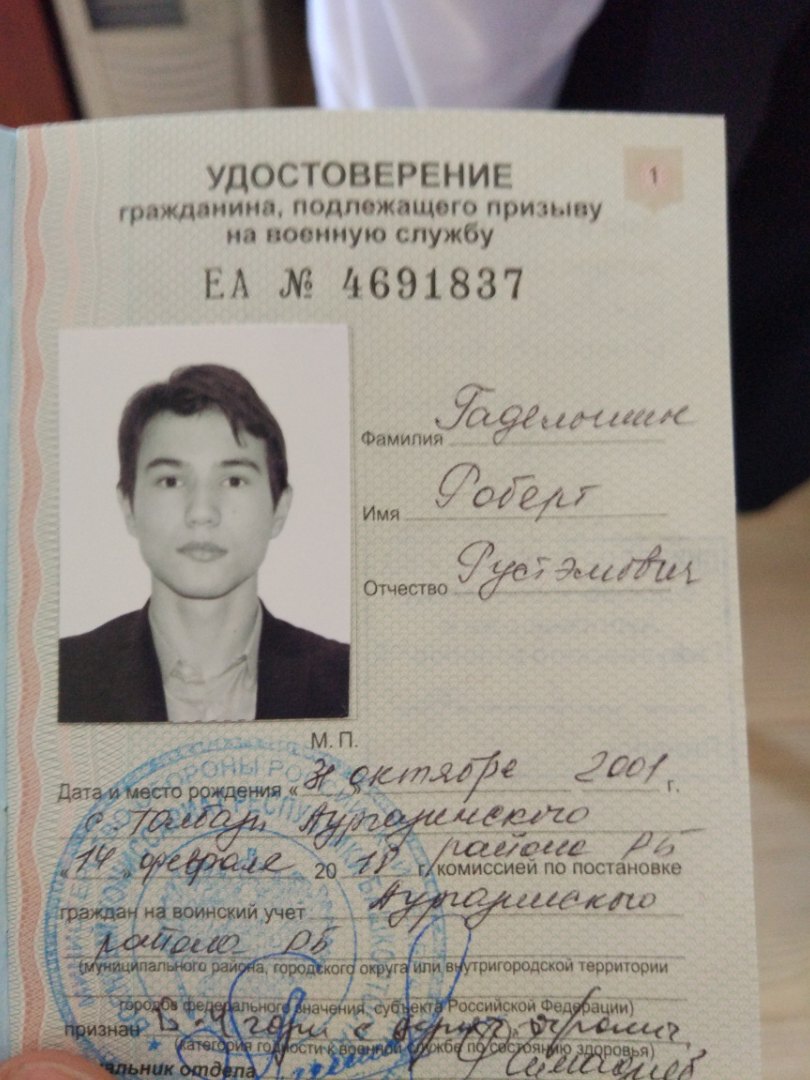 1
УДОСТОВЕРЕНИЕ
гражданина, подлежащего призыву
на военную службу
ЕА № 4691837
Фамилия Гаделошин
Имя Роберт
Отчество Рустэмович
М. П.
Дата и место рождения « 31 октября 2001 г.
с. Толбазы Аургазинского
района РБ
"14" февраля 20 18 г. комиссией по постановке
граждан на воинский учет Аургазинского
района РБ
(муниципального района, городского округа или внутригородской территории
города федерального значения, субъекта Российской Федерации)
признан
(категория годности к военной службе по состоянию здоровья)
отдела